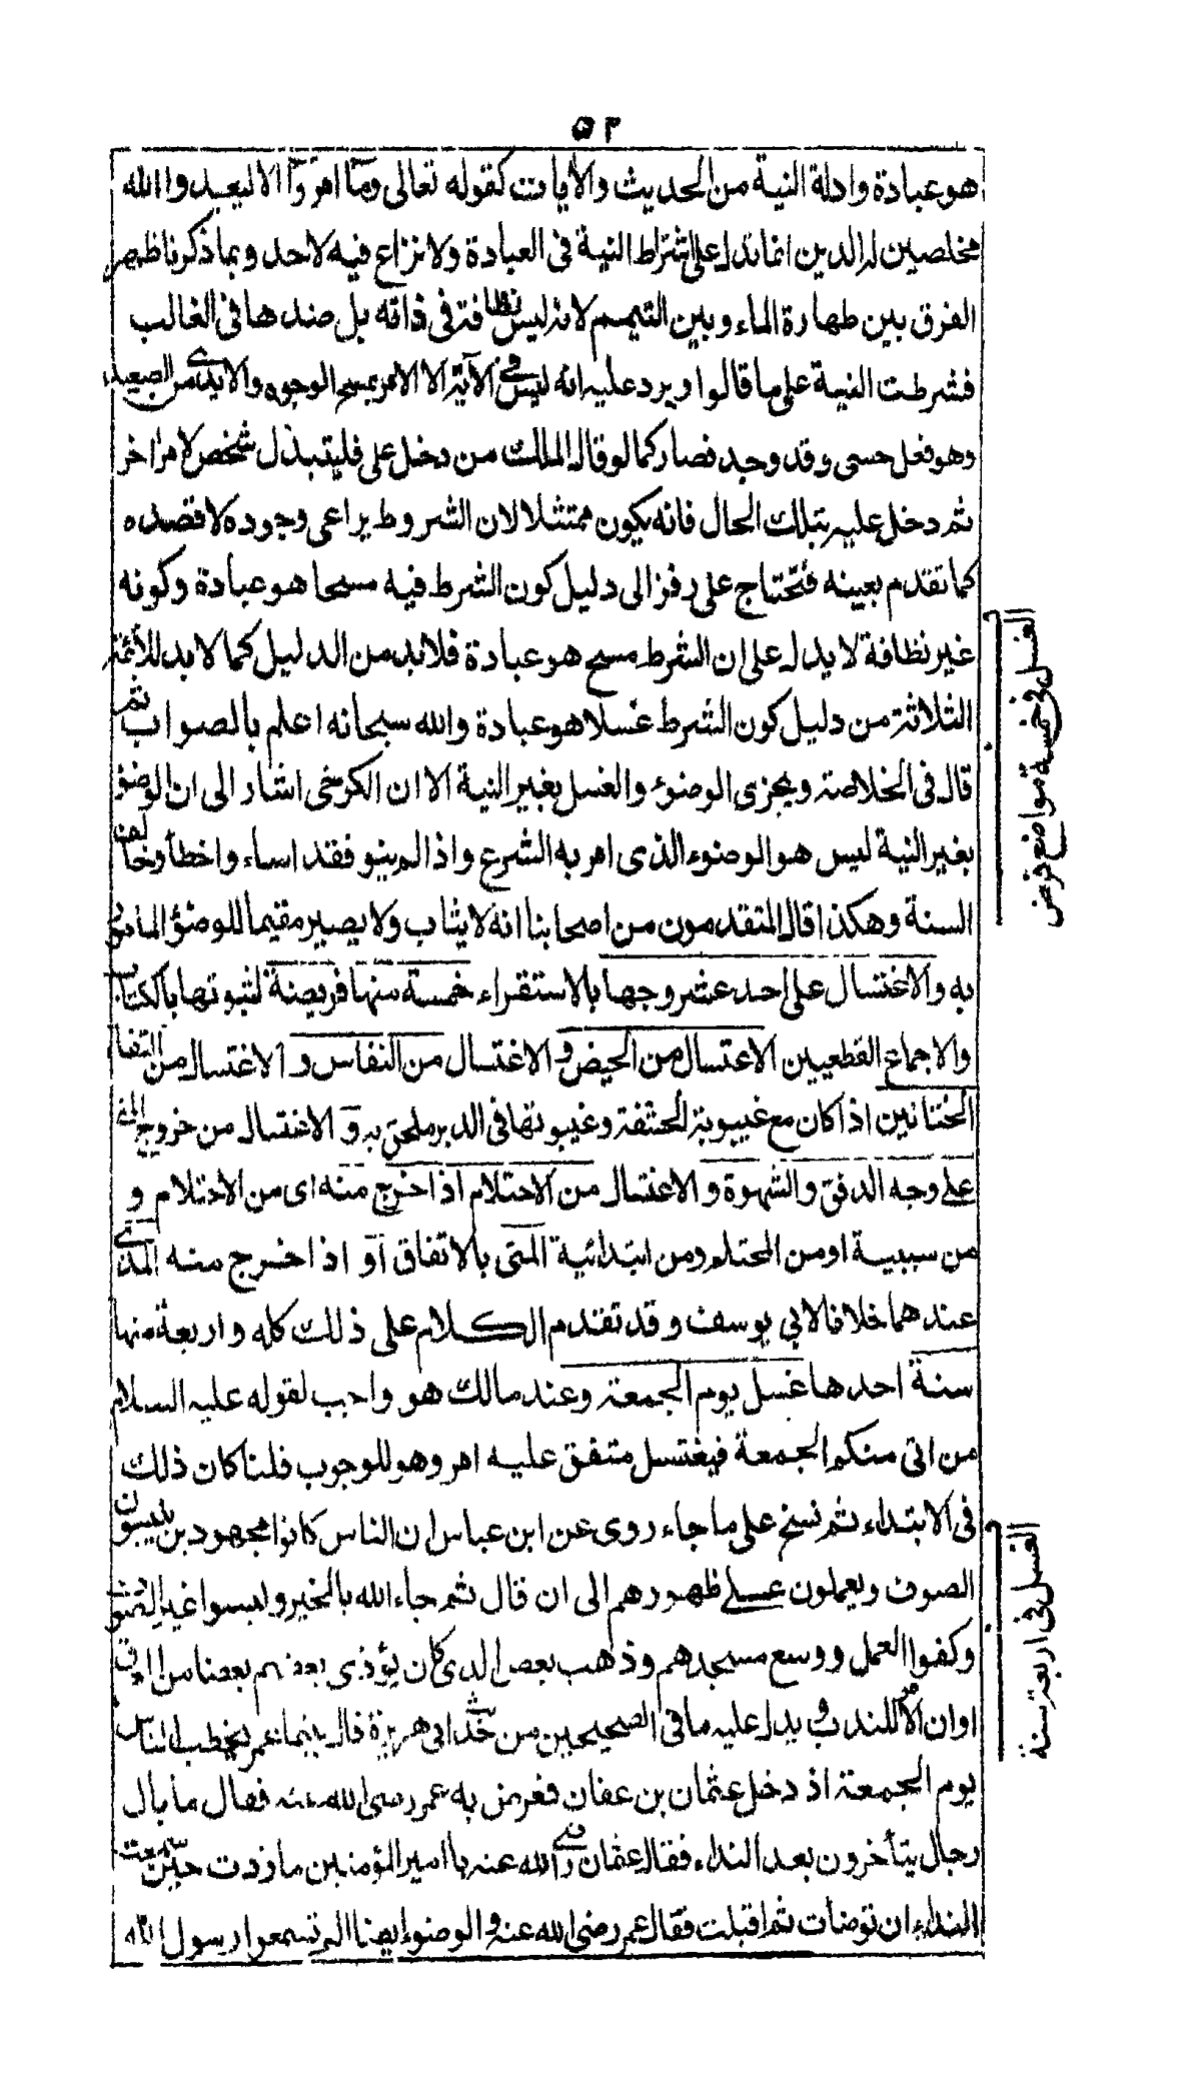 ٥٢
هو عبادة وادلة النية من الحديث والأيات كقوله تعالى وما امروا الا ليعبدوا الله
مخلصين له الدين انما تدل على اشتراط النية فى العبادة ولا نزاع فيه لاحد وبما ذكرنا ظهر
الفرق بين طهارة الماء وبين التيمم لانه ليس نظافة فى ذاته بل ضدها فى الغالب
فشرطت النية على ما قالوا ويرد عليه انه ليس فى الآية الا الامر بمسح الوجوه والايدى من الصعيد
وهو فعل حسى وقد وجد فصار كما لو قال الملك من دخل على فليتبذل شخص لامر اخر
ثم دخل عليه بتلك الحال فانه يكون ممتثلا لان الشروط يراعى وجوده لا قصده
كما تقدم بعينه فتحتاج على زفر الى دليل كون الشرط فيه مسحا هو عبادة وكونه
غير نظافة لا يدل على ان الشرط مسح هو عبادة فلا بد من الدليل كما لا بد للأئمة
الثلاثة من دليل كون الشرط غسلا هو عبادة والله سبحانه اعلم بالصواب ثم
قال فى الخلاصة ويجزى الوضوء والغسل بغير النية الا ان الكرخى اشار الى ان الوضوء
بغير النية ليس هو الوضوء الذى امر به الشرع واذا لم ينو فقد اساء واخطأ وخالف
السنة وهكذا قال المتقدمون من اصحابنا انه لا يثاب ولا يصير مقيما للوضؤ المأمور
به والاغتسال على احد عشر وجها بالاستقراء خمسة منها فريضة لثبوتها بالكتاب
والاجماع القطعيين الاغتسال من الحيض و الاغتسال من النفاس و الاغتسال من التقاء
الختانين اذا كان مع غيبوبة الحشفة وغيبوبتها فى الدبر ملحق به و الاغتسال من خروج المنى
على وجه الدفق والشهوة و الاغتسال من الاحتلام اذا خرج منه اى من الاحتلام و
من سببية او من المحتلم ومن ابتدائية المنى بالاتفاق او اذا خرج منه المذى
عندهما خلافا لابى يوسف وقد تقدم الكلام على ذلك كله واربعة منها
سنة احدها غسل يوم الجمعة وعند مالك هو واجب لقوله عليه السلام
من اتى منكم الجمعة فيغتسل متفق عليه امر وهو للوجوب قلنا كان ذلك
فى الابتداء ثم نسخ على ما جاء روى عن ابن عباس ان الناس كانوا مجهودين يلبسون
الصوف ويعملون على ظهورهم الى ان قال ثم جاء الله بالخير ولبسوا غير الصوف
وكفوا العمل ووسع مسجدهم وذهب بعض الذى كان يؤذى بعضهم بعضا من العرق
او ان الامر للندب ويدل عليه ما فى الصحيحين من حديث ابى هريرة قال بينما عمر يخطب الناس
يوم الجمعة اذ دخل عثمان بن عفان فعرض به عمر رضى الله عنه فقال ما بال
رجال يتأخرون بعد النداء فقال عثمان رضى الله عنه يا امير المؤمنين ما زدت حين سمعت
النداء ان توضات ثم اقبلت فقال عمر رضى الله عنه و الوضوء ايضا الم تسمعوا رسول الله
الغسل فى خمسة مواضع فرض
الغسل فى اربعة سنة